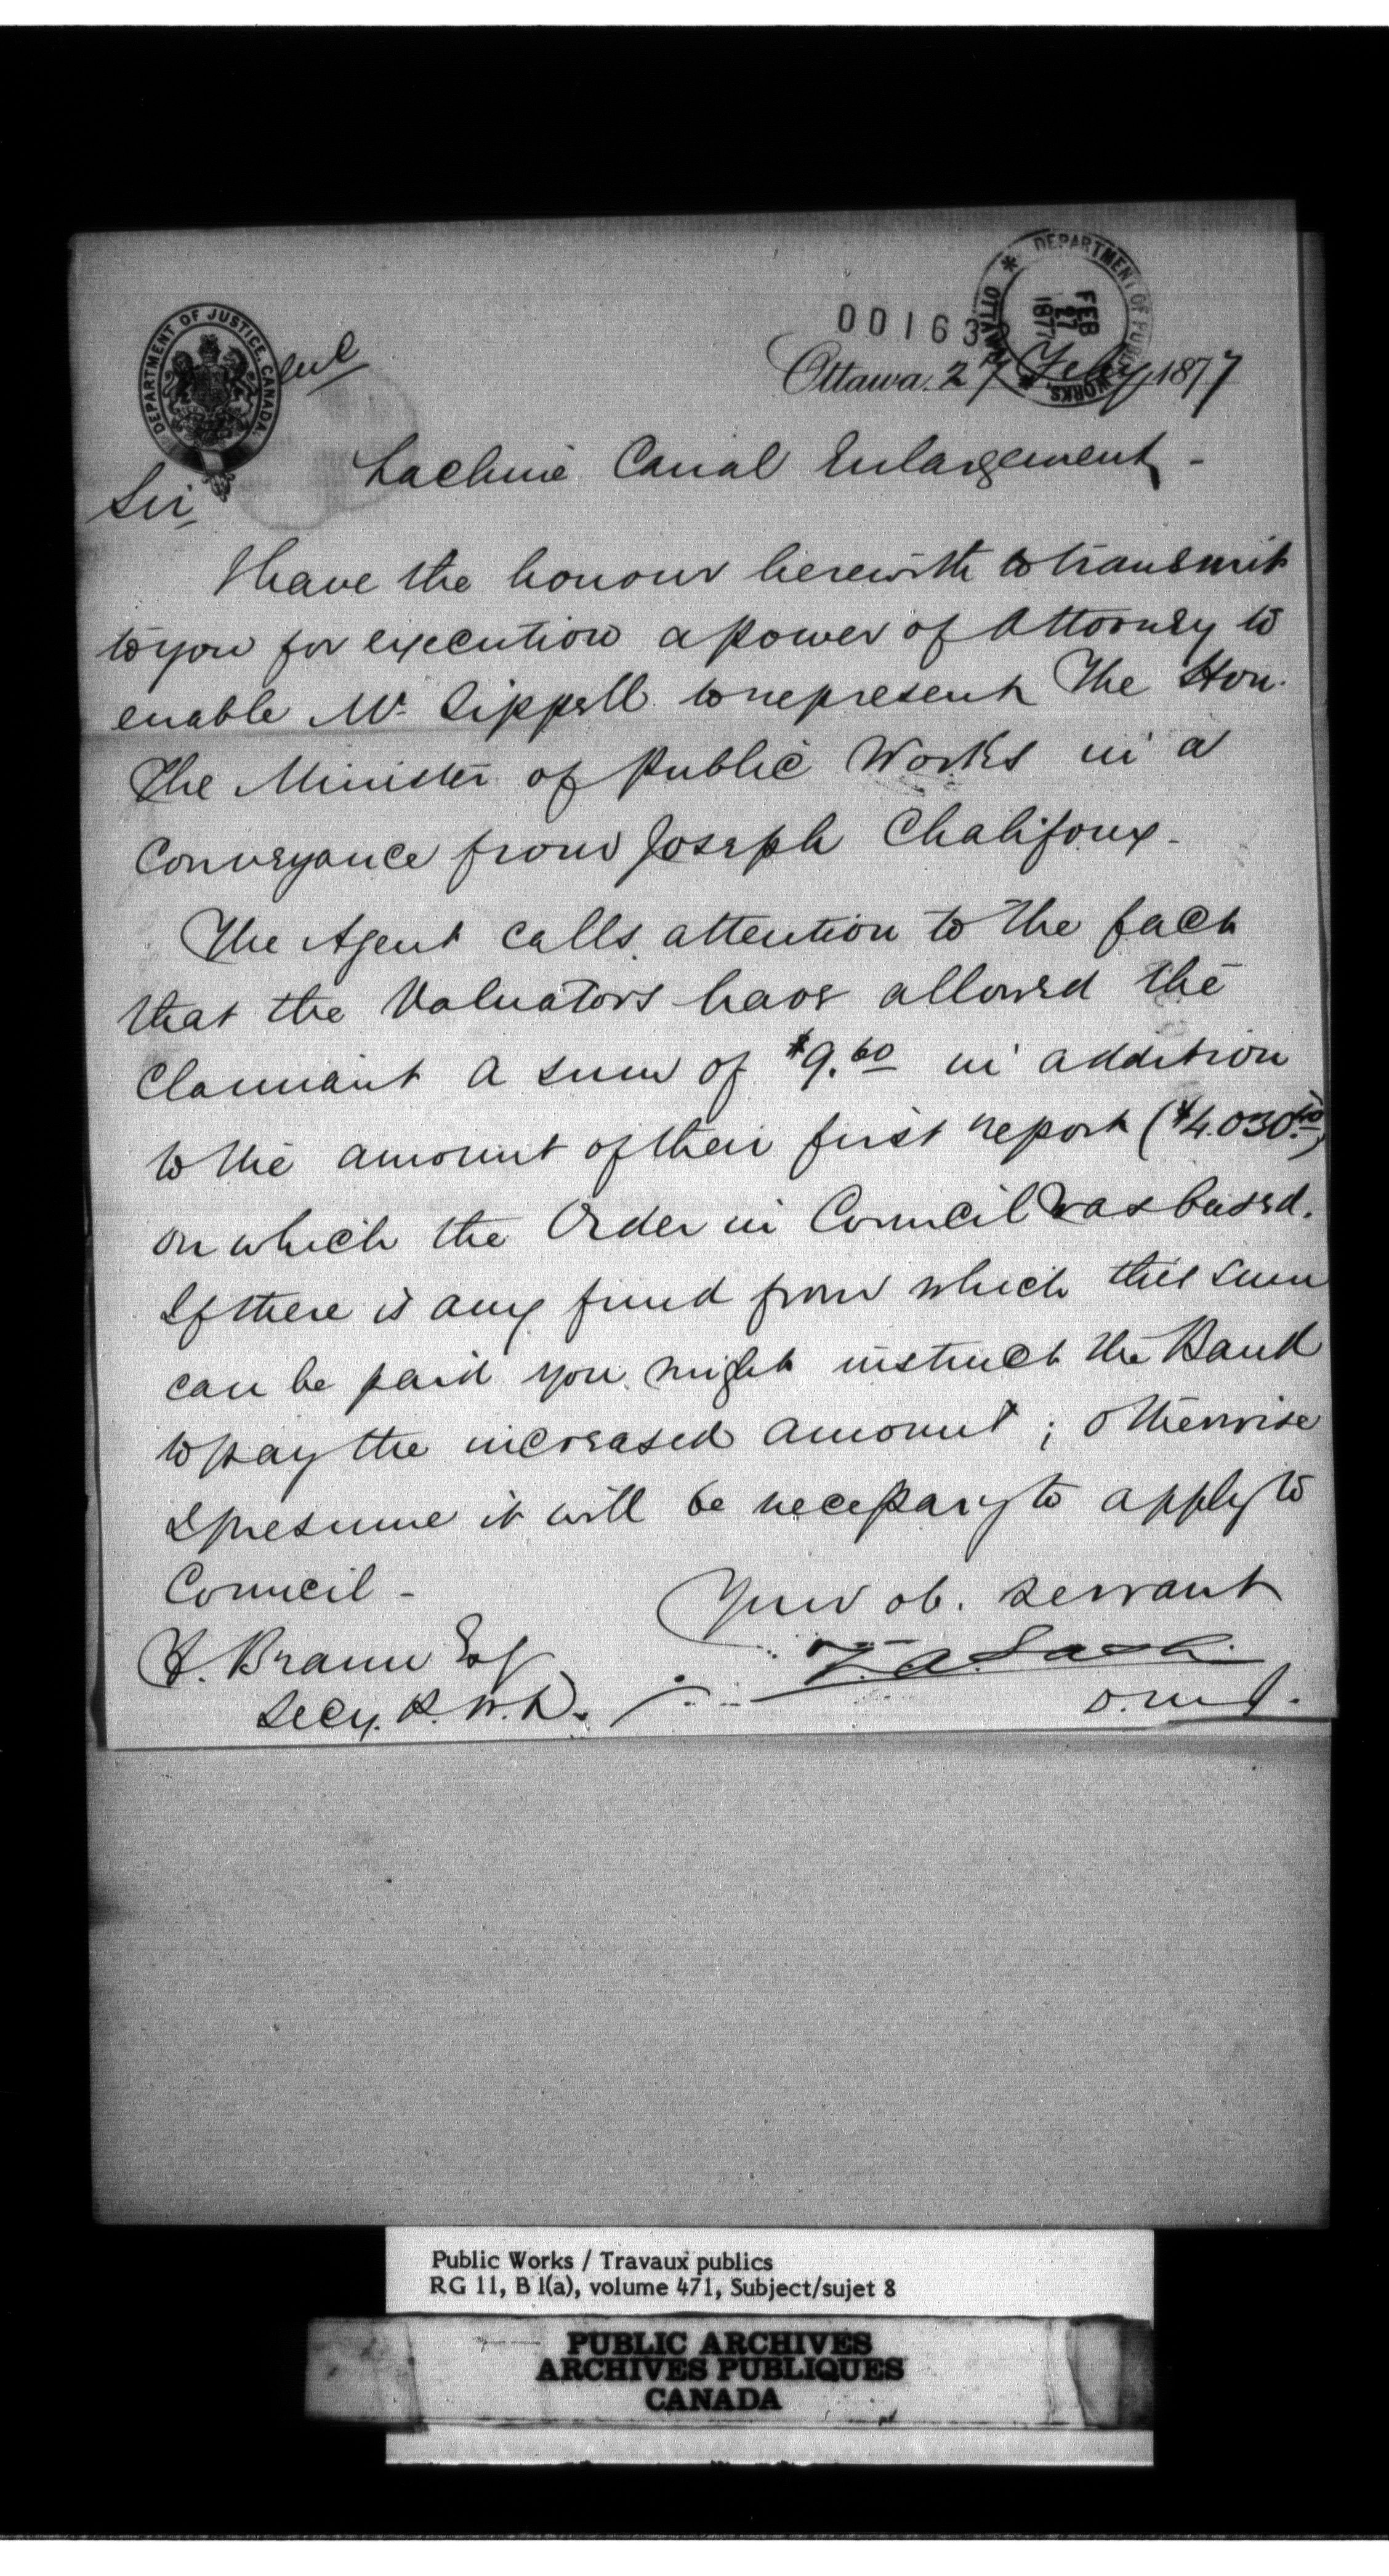 DEPARTMENT OF JUSTICE, CANADA.
DEPARTMENT OF PUBLIC WORKS. OTTAWA
FEB 27 1877
00163
Encl
Ottawa. 27 Feby 1877
Lachine Canal Enlargement -
Sir,
I have the honour herewith to transmit
to you for execution a power of Attorney to
enable Mr. Sippell to represent The Hon.
The Minister of Public Works in a
Conveyance from Joseph Chalifoux -
The Agent calls attention to the fact
that the Valuators have allowed the
Claimant a sum of $9.60 in addition
to the amount of their first report ($4.030.40)
on which the Order in Council was based.
If there is any fund from which this sum
can be paid you might instruct the Bank
to pay the increased amount ; otherwise
I presume it will be necessary to apply to
Council -
Your ob. servant
Z. A. Lash
D. M. J.
F. Braun Esq
Secy. P. W. D.
Public Works / Travaux publics
RG 11, B 1(a), volume 471, Subject/sujet 8
PUBLIC ARCHIVES
ARCHIVES PUBLIQUES
CANADA